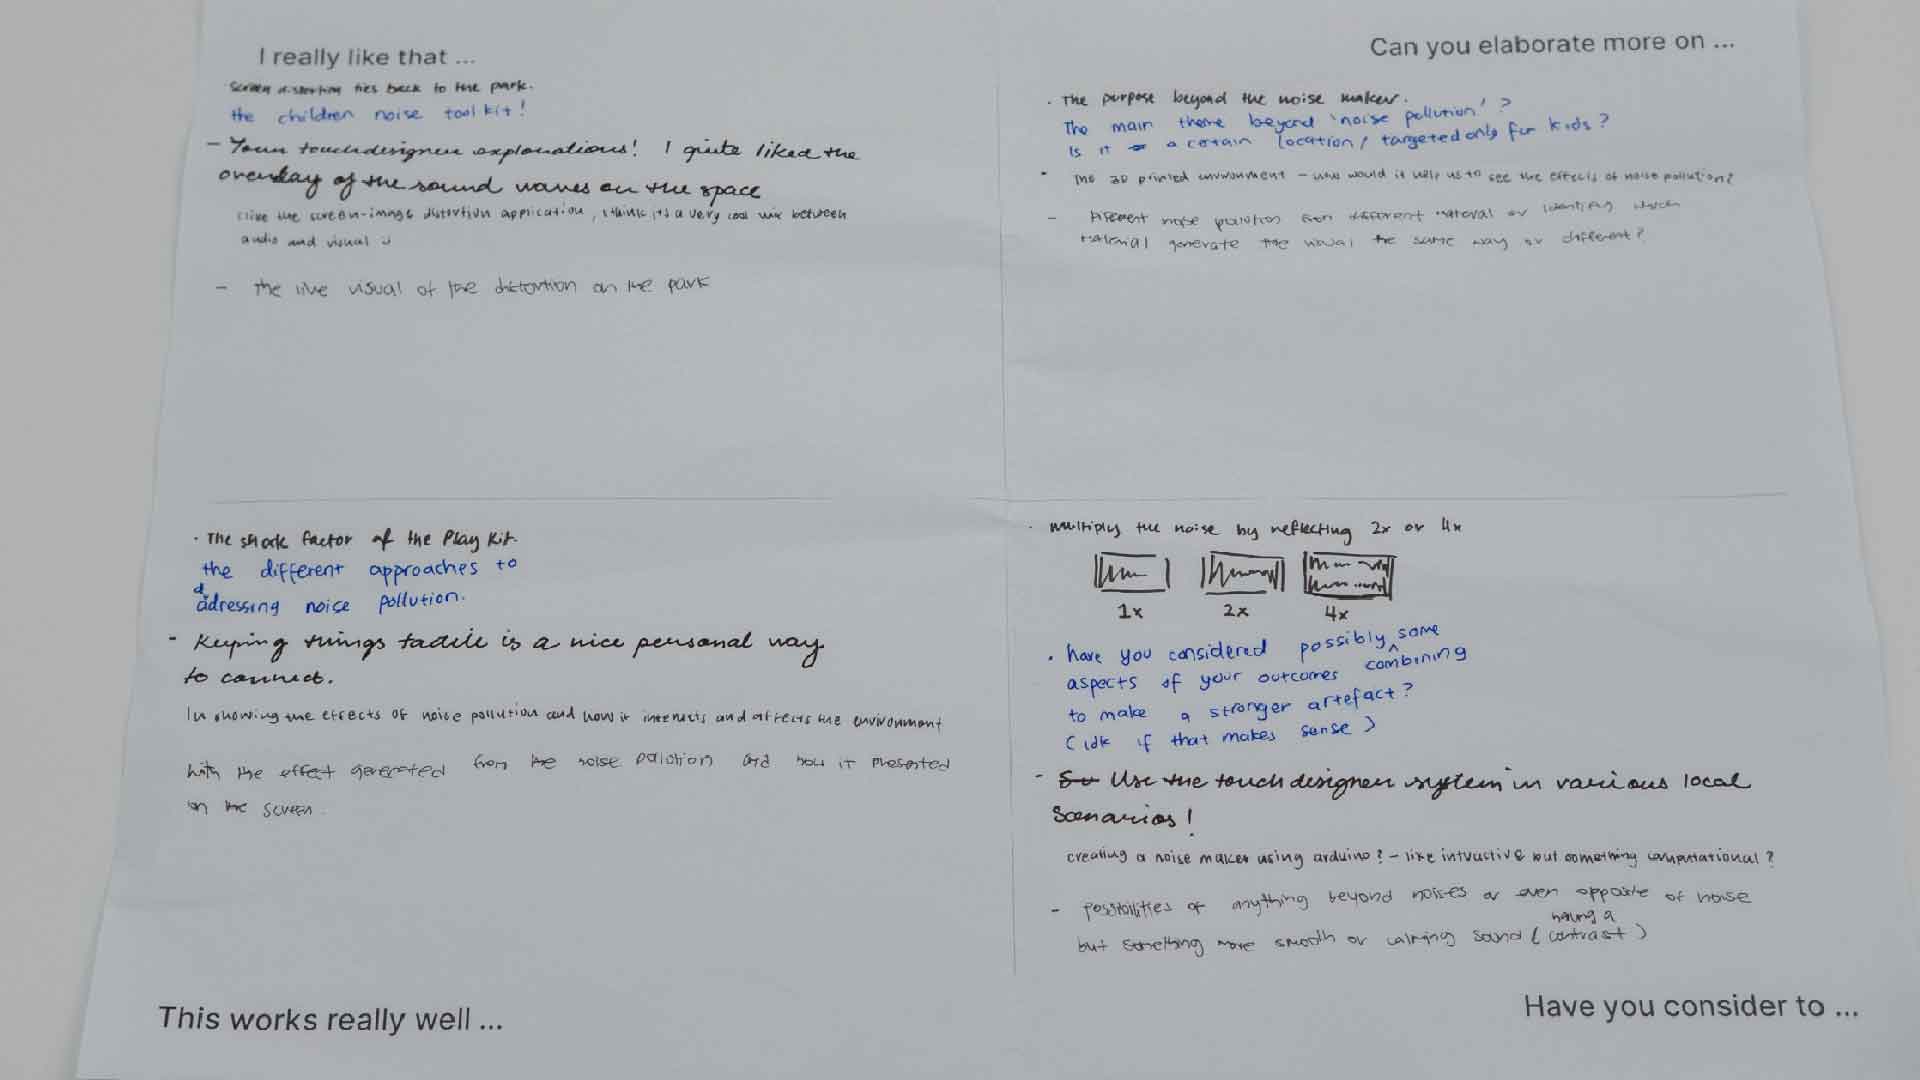 I really like that ...
Screen distortion ties back to the park.
the children noise toolkit!
- Your touchdesigner explorations! I quite liked the
overlay of the sound waves on the space
I like the screen-image distortion application, I think its a very cool mix between
audio and visual :)
- The live visual of the distortion on the park
Can you elaborate more on ...
. The purpose beyond the noise maker.
The main theme beyond 'noise pollution'?
Is it a certain location / targeted only for kids?
The 3D printed environment - how would it help us to see the effects of noise pollution?
- different noise pollution from different material or identify which
material generate the visual the same way or different?
. The shock factor of the Play Kit.
the different approaches to
addressing noise pollution.
- Keeping things tactile is a nice personal way
to connect.
In showing the effects of noise pollution and how it interacts and affects the environment
with the effect generated from the noise pollution and how it presented
on the screen.
This works really well ...
. multiply the noise by reflecting 2x or 4x
1x 2x 4x
. have you considered possibly combining some
aspects of your outcomes
to make a stronger artefact?
(idk if that makes sense)
- So Use the touchdesigner system in various local
scenarios!
creating a noise maker using arduino? - like intuitive but something computational?
- possibilities of anything beyond noises or even opposite of noise
but something more smooth or calming sound (having a contrast)
Have you consider to ...